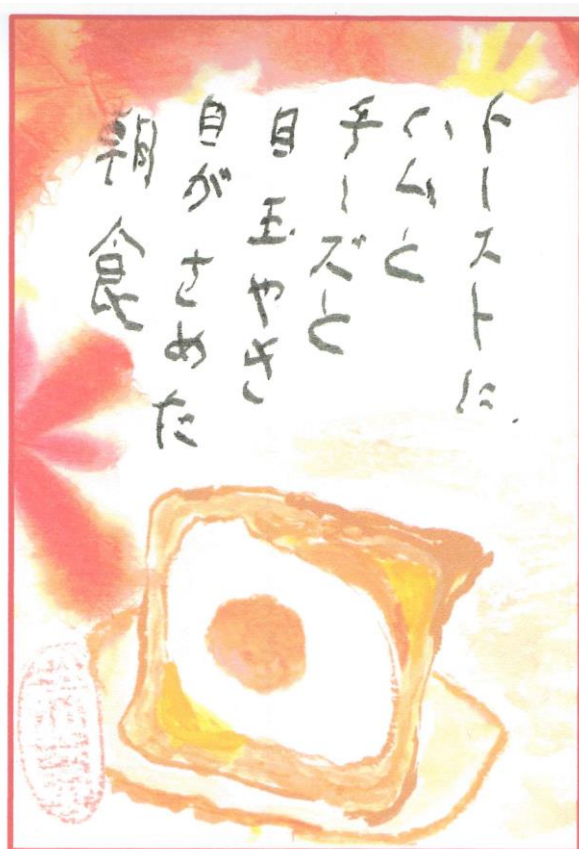 トーストに
ハムと
チーズと
目玉やき
目がさめた
朝食